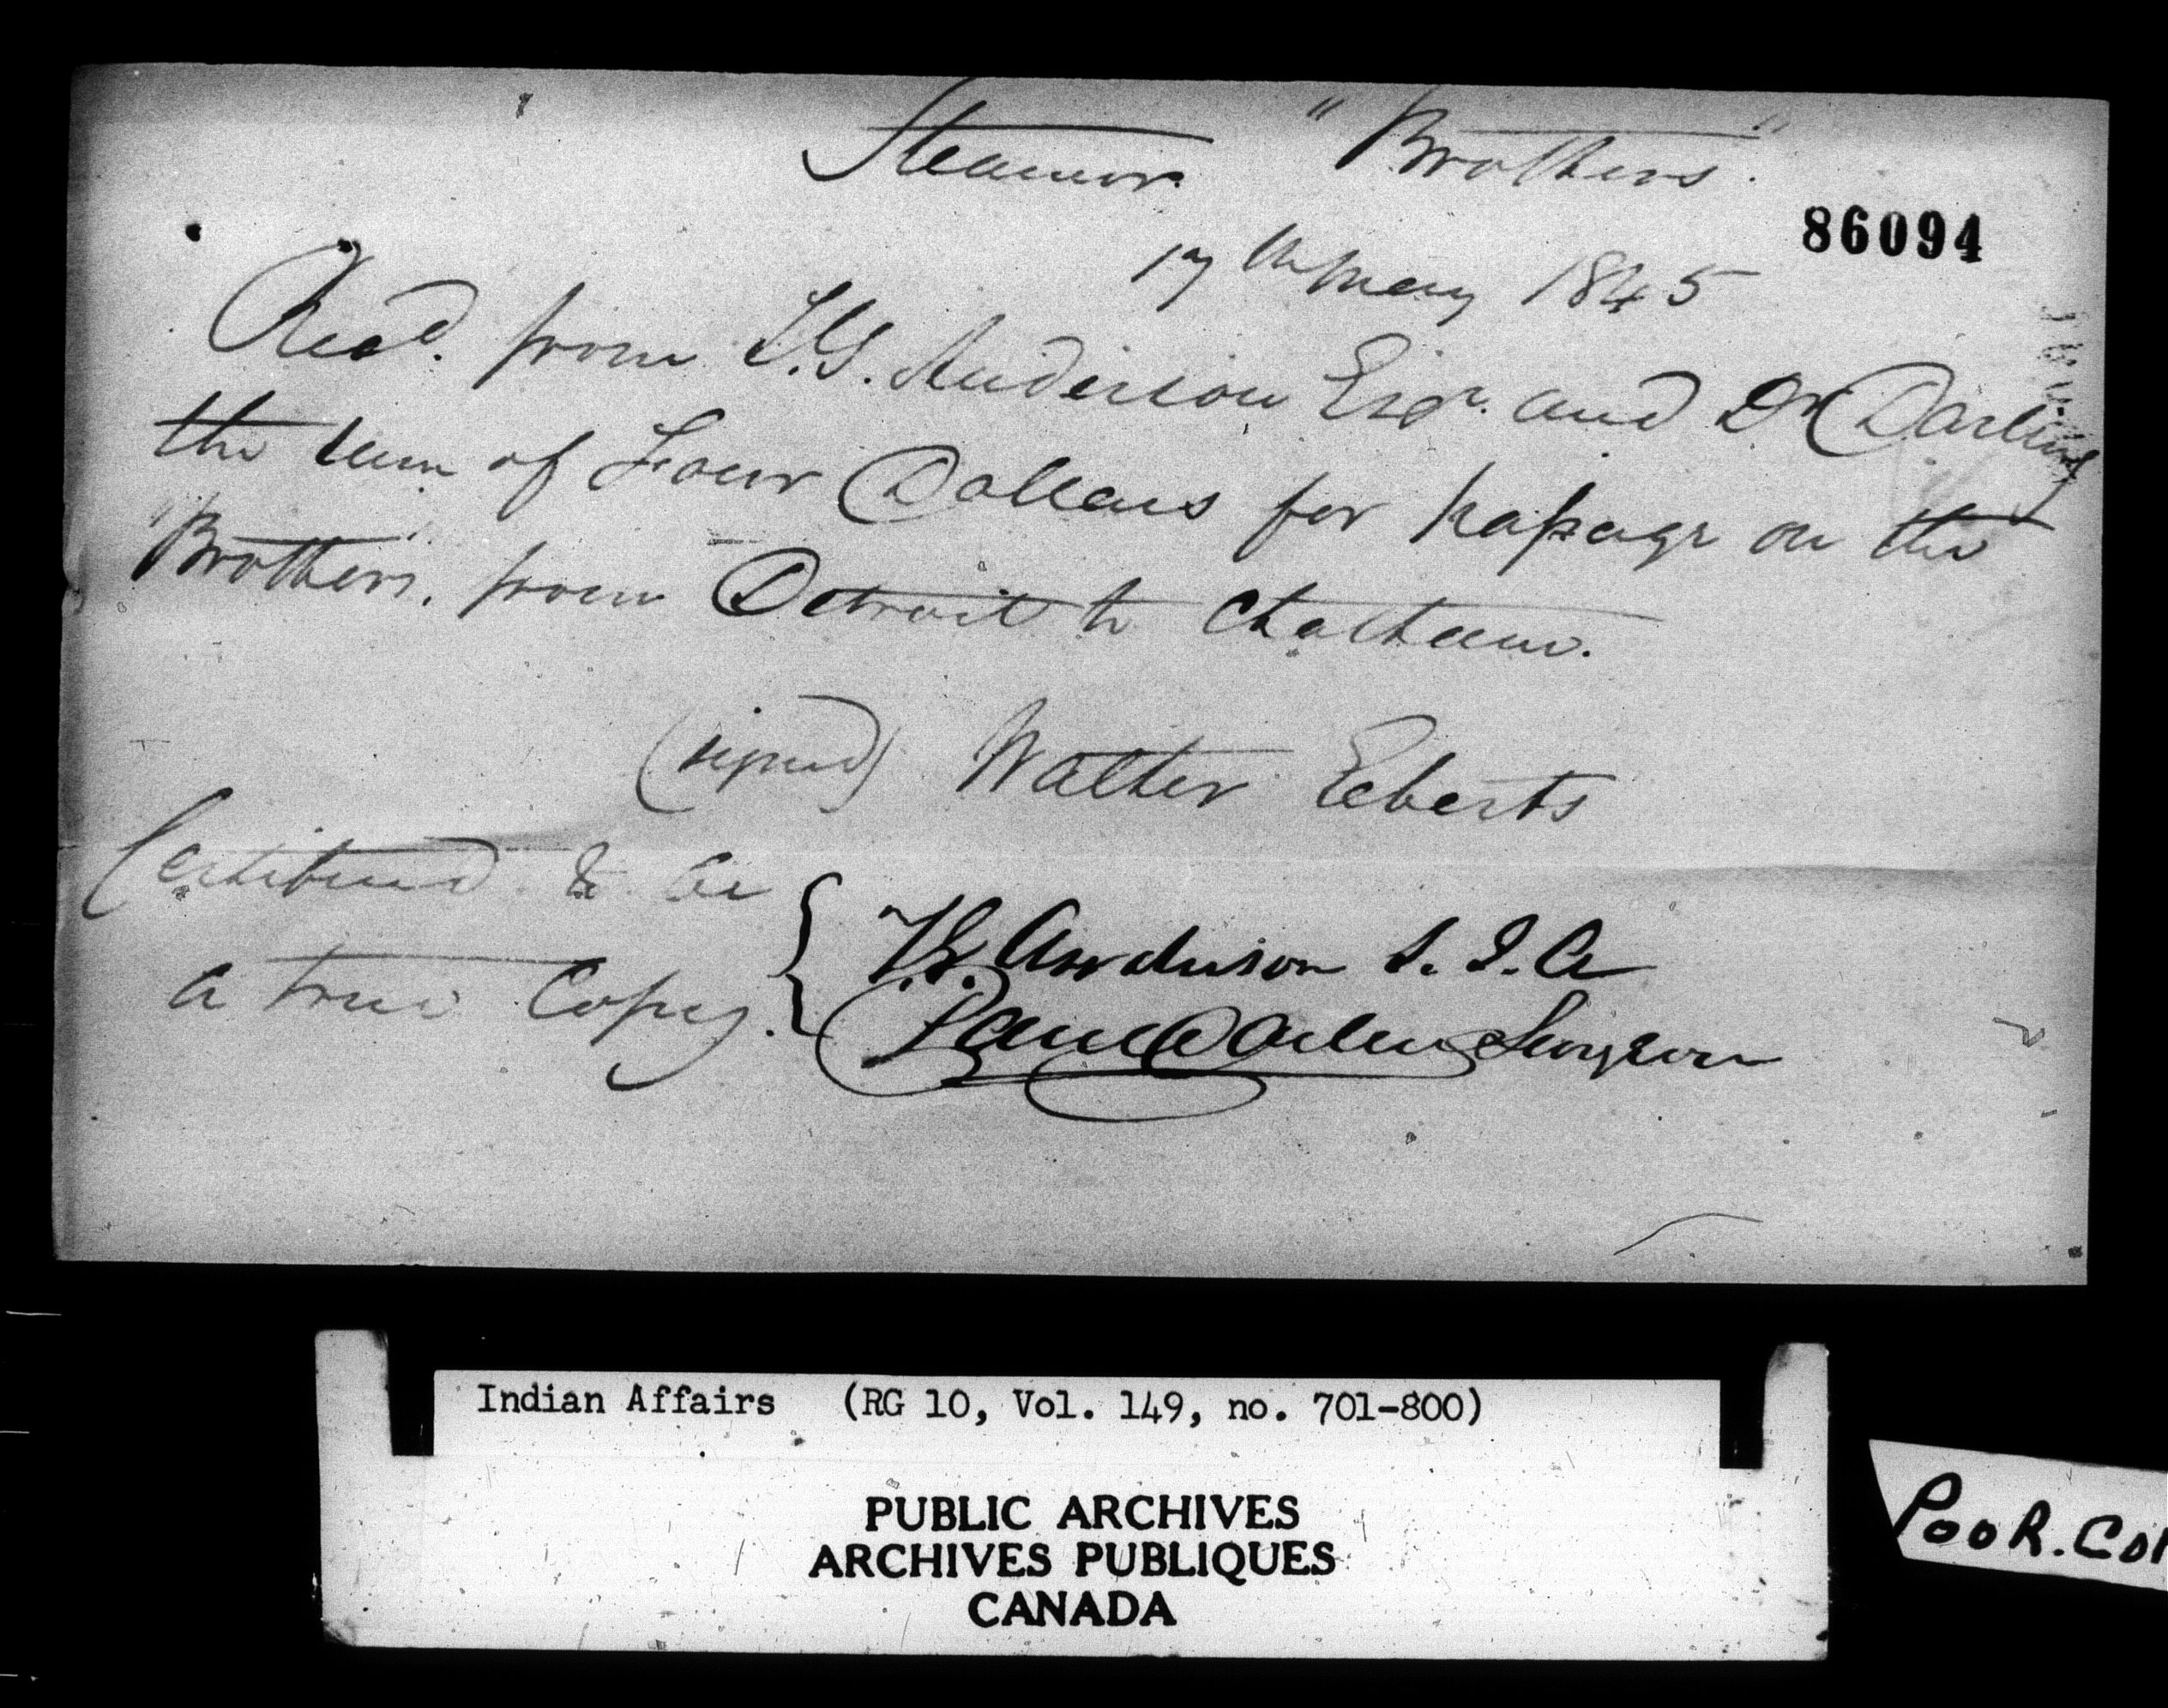 Steamer "Brothers".
86094
17th May 1845
Recd. from T.G. Anderson Esqr. and Dr Darling
the sum of Four Dollars for passage on the
"Brothers." from Detroit to Chatham.
(signed) Walter Eberts
Certified to be
a true Copy.
T.G. Anderson S.I.A
Darling Surgeon
Indian Affairs (RG 10, Vol. 149, no. 701-800)
PUBLIC ARCHIVES
ARCHIVES PUBLIQUES
CANADA
POOR.CO